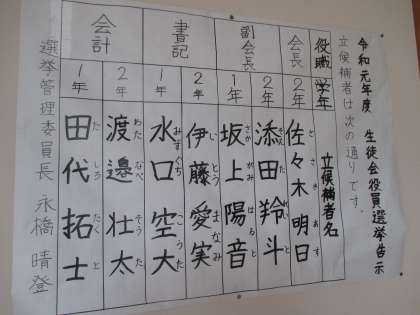 令和元年度 生徒会役員選挙告示
立候補者は次の通りです。
役職 学年 立候補者名
会長 2年 佐々木明日
副会長 2年 添田羚斗
1年 坂上陽音
書記 2年 伊藤愛実
1年 水口空大
会計 2年 渡邉壮太
1年 田代拓士
選挙管理委員長 永橋晴登